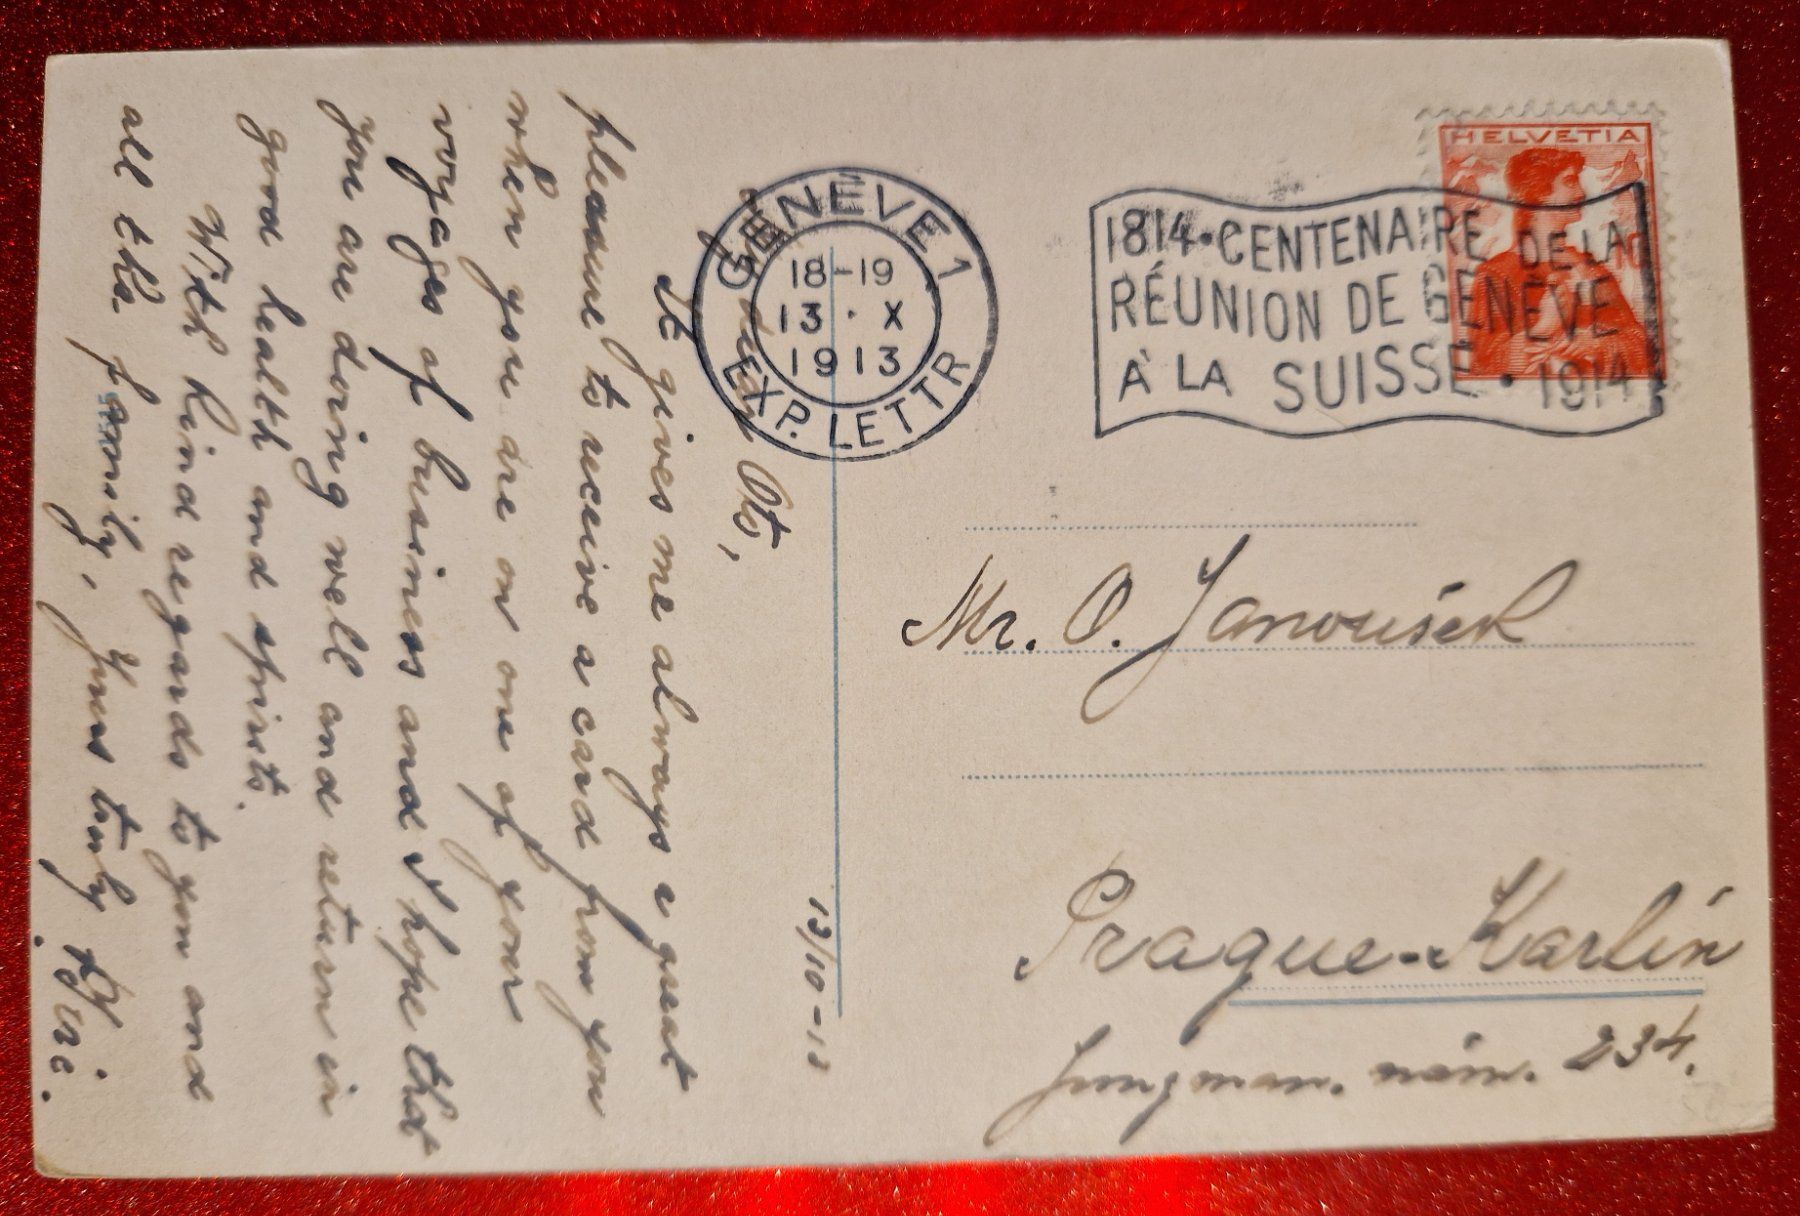 13/10-13
Dear Oto,
It gives me always a great
pleasure to receive a card from you
when you are on one of your
voyages of business and I hope that
you are doing well and return in
good health and spirits.
With kind regards to you and
all the family, Yours truly
GENÈVE 1
18-19
13 · X
1913
EXP. LETTR
HELVETIA
1814 · CENTENAIRE DE LA
RÉUNION DE GENÈVE
À LA SUISSE · 1914
Mr. O. Janoušek
Prague-Karlín
Jungman. nám. 234.